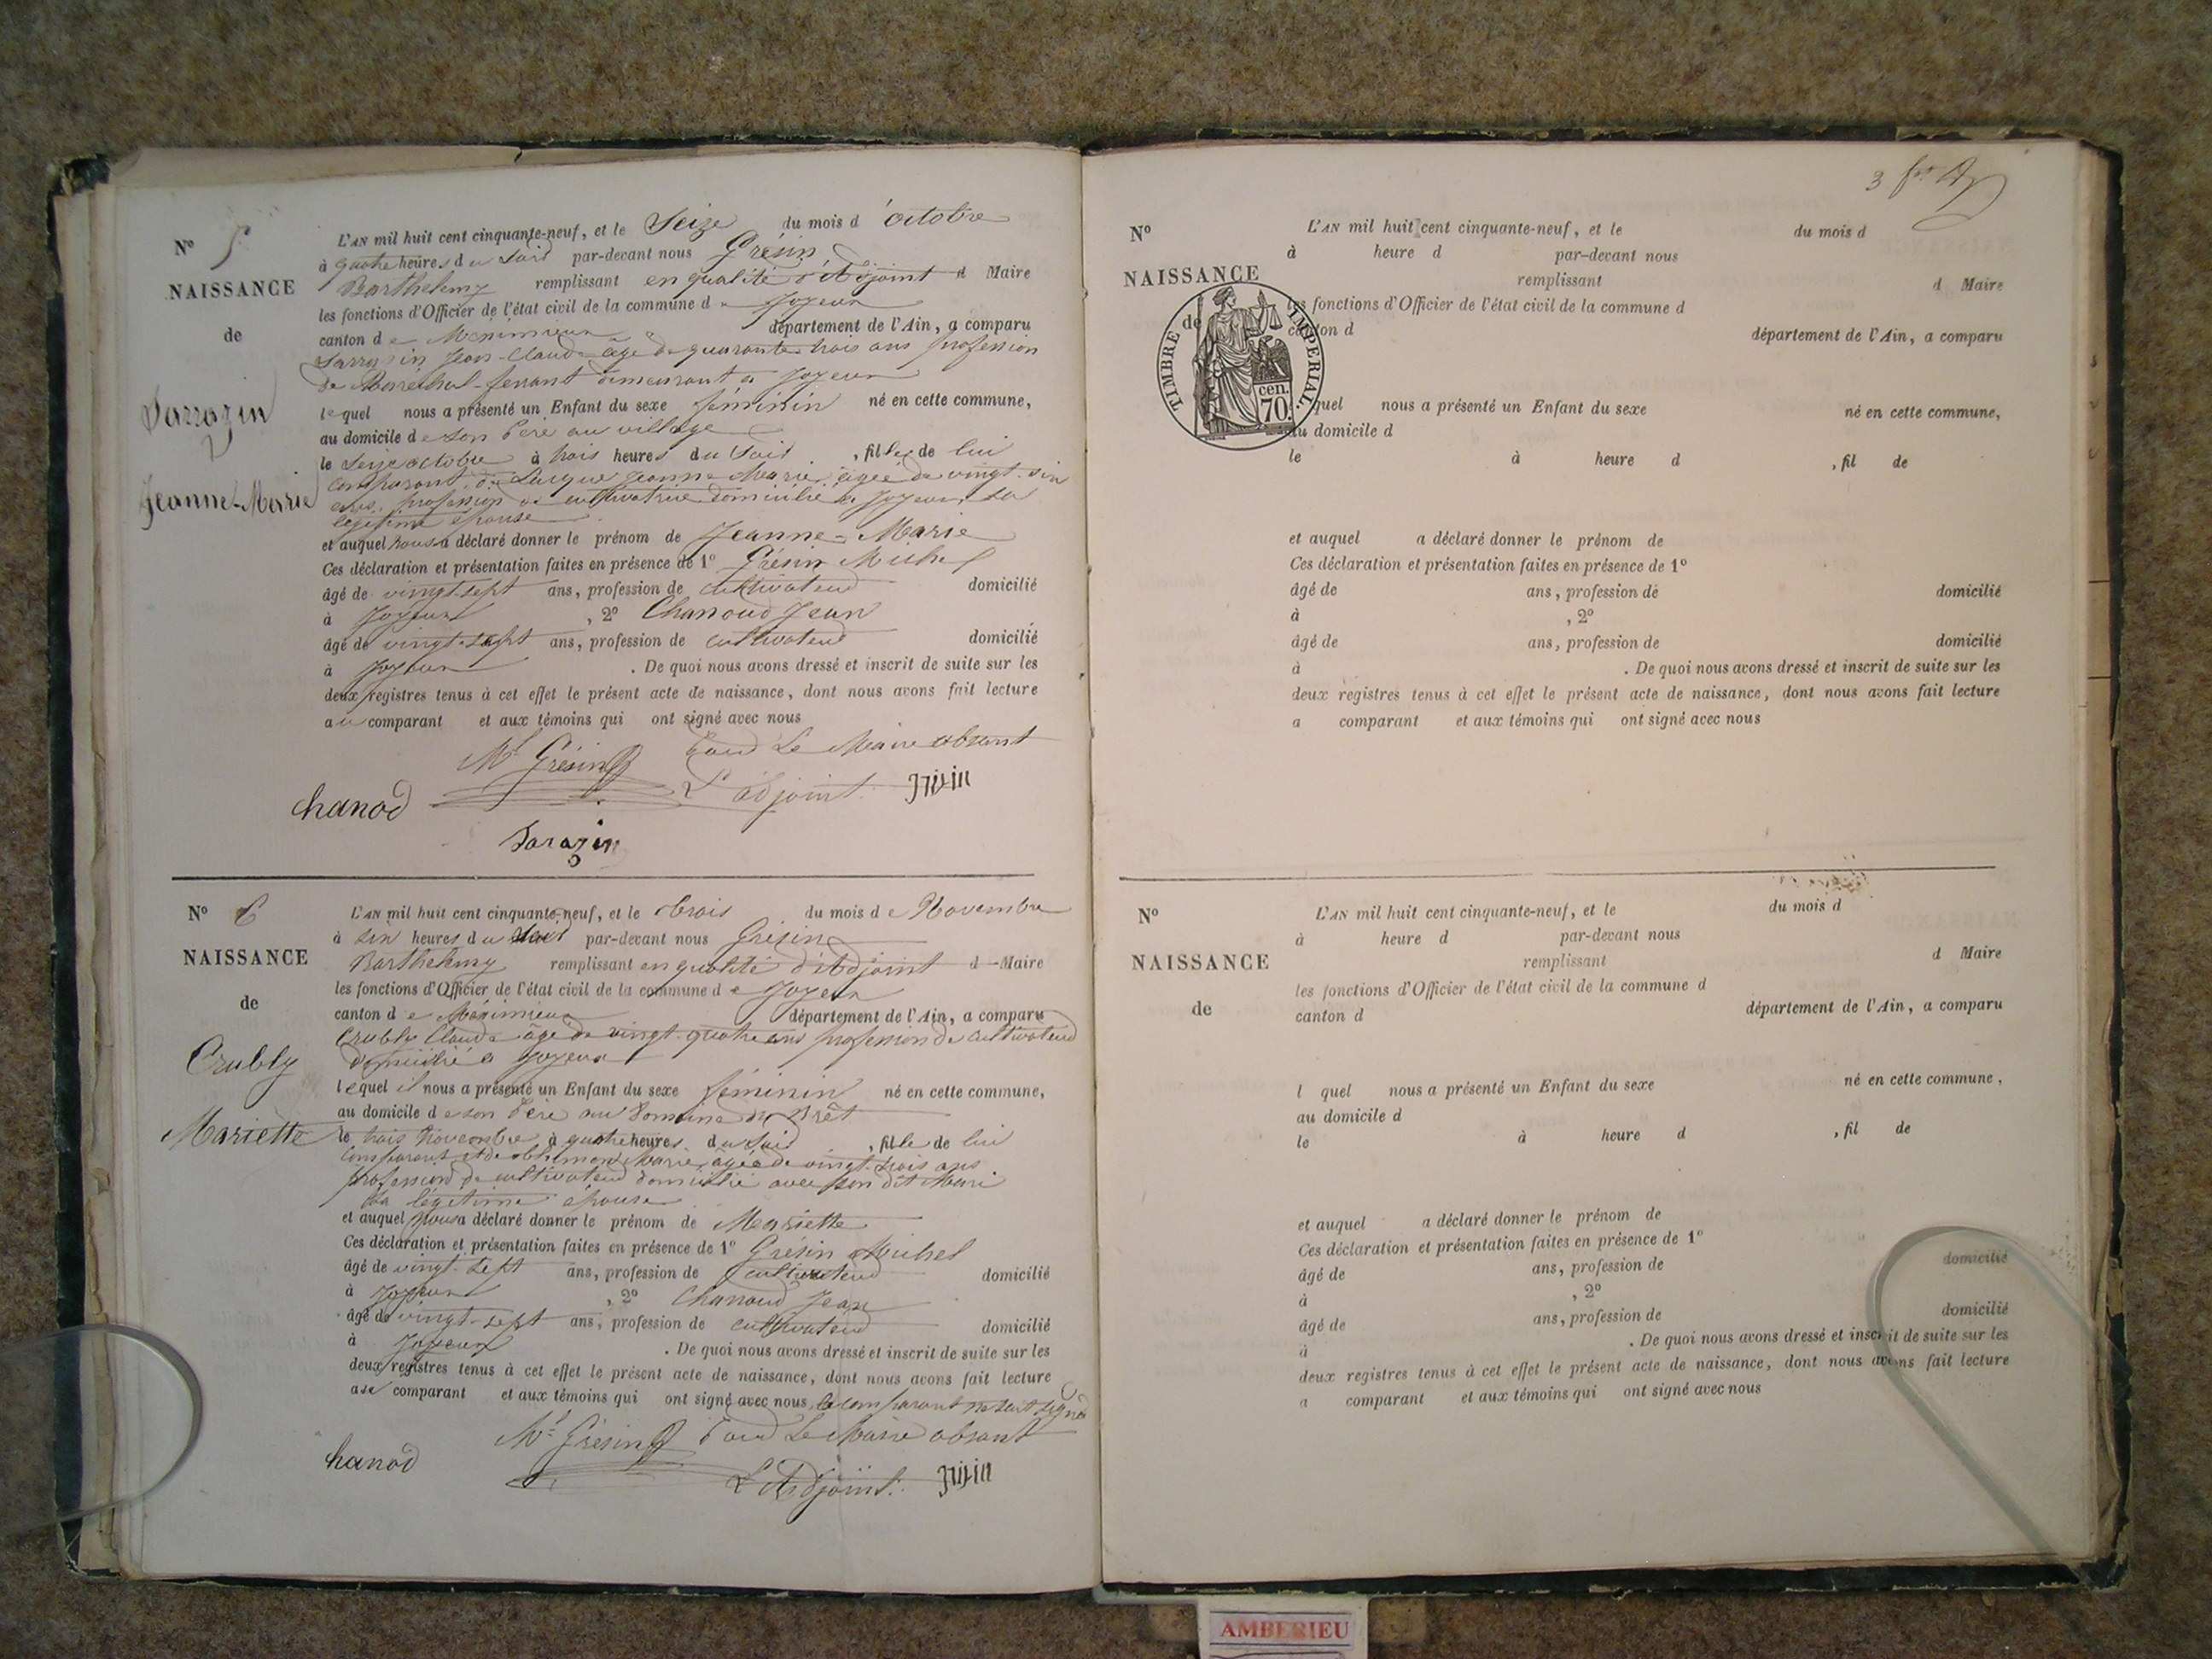 N° 5
NAISSANCE
de
Sarrazin
Jeanne-Marie
L'AN mil huit cent cinquante-neuf, et le Seize du mois d'octobre
à quatre heures du Soir par-devant nous Grésin
Barthelemy remplissant en qualité d'Adjoint d Maire
les fonctions d'Officier de l'état civil de la commune de Joyeux
canton de Meximieux département de l'Ain, a comparu
Sarrazin Jean-Claude âgé de quarante trois ans profession
de Marechal-ferrant demeurant à Joyeux
lequel nous a présenté un Enfant du sexe féminin né en cette commune,
au domicile de son Père au village
le Seize octobre à trois heures du Soir, fille de lui
comparant, de Jeanne Marie, âgée de vingt-six
ans, profession de cultivatrice domiciliée à Joyeux, sa
légitime épouse
et auquel nous a déclaré donner le prénom de Jeanne-Marie
Ces déclaration et présentation faites en présence de 1° Grésin Michel
âgé de vingt-sept ans, profession de cultivateur domicilié
à Joyeux, 2° Chanoud Jean
âgé de vingt-sept ans, profession de cultivateur domicilié
à Joyeux. De quoi nous avons dressé et inscrit de suite sur les
deux registres tenus à cet effet le présent acte de naissance, dont nous avons fait lecture
au comparant et aux témoins qui ont signé avec nous
Mel Grésin Pour Le Maire absent
chanod L'adjoint. grésin
Sarazin
N° 6
NAISSANCE
de
Crubly
Mariette
L'AN mil huit cent cinquante-neuf, et le trois du mois de Novembre
à six heures du soir par-devant nous Grésin
Barthelemy remplissant en qualité d'Adjoint d Maire
les fonctions d'Officier de l'état civil de la commune de Joyeux
canton de Méximieux département de l'Ain, a comparu
Crubly Claude âgé de vingt-quatre ans profession de cultivateur
domicilié à Joyeux
lequel il nous a présenté un Enfant du sexe féminin né en cette commune,
au domicile de son Père au Domaine du Brêt
le trois Novembre à quatre heures du Soir, fille de lui
comparant et de Marie, âgée de vingt-trois ans
profession de cultivateur domicilié avec son dit Mari
sa légitime épouse
et auquel nous a déclaré donner le prénom de Mariette
Ces déclaration et présentation faites en présence de 1° Grésin Michel
âgé de vingt-sept ans, profession de cultivateur domicilié
à Joyeux, 2° Chanoud Jean
âgé de vingt-sept ans, profession de cultivateur domicilié
à Joyeux. De quoi nous avons dressé et inscrit de suite sur les
deux registres tenus à cet effet le présent acte de naissance, dont nous avons fait lecture
au comparant et aux témoins qui ont signé avec nous, le comparant ne sait signé
Mel Grésin Pour Le Maire absent
hanod L'Adjoint. grésin
3
N°
NAISSANCE
de
TIMBRE IMPERIAL.
70 cen.
L'AN mil huit cent cinquante-neuf, et le du mois d
à heure d par-devant nous
remplissant d Maire
les fonctions d'Officier de l'état civil de la commune d
canton d département de l'Ain, a comparu
quel nous a présenté un Enfant du sexe né en cette commune,
au domicile d
le à heure d , fil de
et auquel a déclaré donner le prénom de
Ces déclaration et présentation faites en présence de 1°
âgé de ans, profession de domicilié
à , 2°
âgé de ans, profession de domicilié
à . De quoi nous avons dressé et inscrit de suite sur les
deux registres tenus à cet effet le présent acte de naissance, dont nous avons fait lecture
a comparant et aux témoins qui ont signé avec nous
N°
NAISSANCE
de
L'AN mil huit cent cinquante-neuf, et le du mois d
à heure d par-devant nous
remplissant d Maire
les fonctions d'Officier de l'état civil de la commune d
canton d département de l'Ain, a comparu
l quel nous a présenté un Enfant du sexe né en cette commune,
au domicile d
le à heure d , fil de
et auquel a déclaré donner le prénom de
Ces déclaration et présentation faites en présence de 1°
âgé de ans, profession de domicilié
à , 2°
âgé de ans, profession de domicilié
à . De quoi nous avons dressé et inscrit de suite sur les
deux registres tenus à cet effet le présent acte de naissance, dont nous avons fait lecture
a comparant et aux témoins qui ont signé avec nous
AMBERIEU